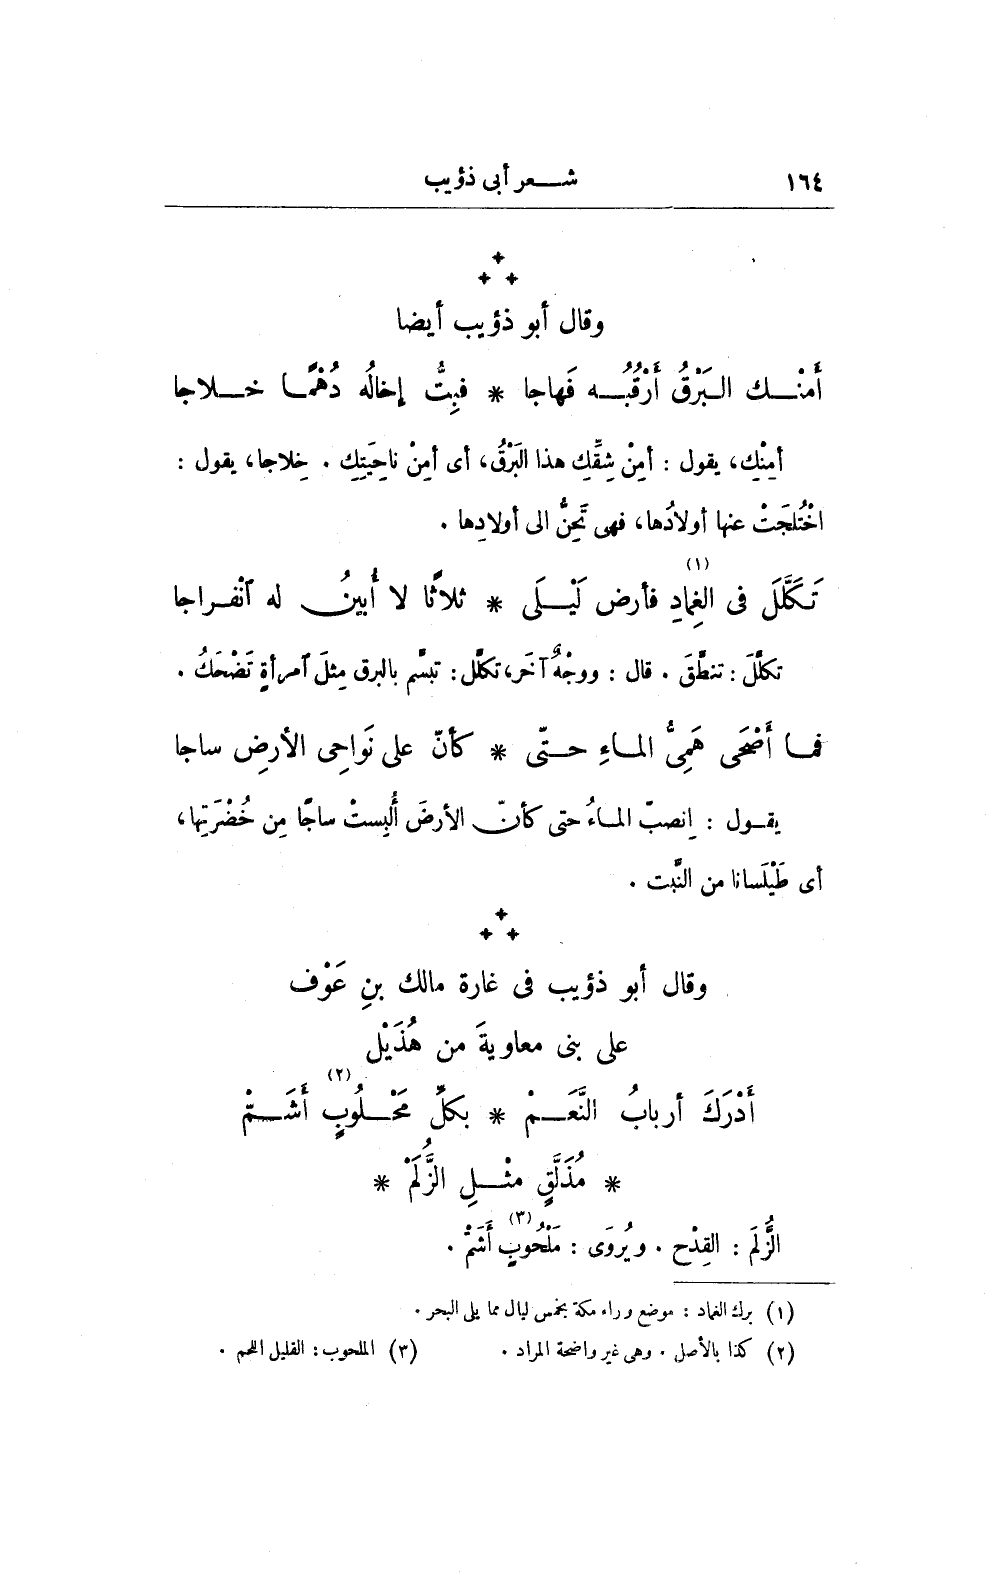 ١٦٤
شعر أبى ذؤيب
وقال أبو ذؤيب أيضا
أَمنْك البَرْقُ أَرْقُبُه فَهاجا * فبِتُّ إخالُه دُهْمًا خلاجا
أمِنْكِ، يقول : أمِنْ شِقِّكِ هذا البَرْقُ، أى أمِنْ ناحِيَتِكِ . خِلاجا، يقول :
اخْتُلجَتْ عنها أولادُها، فهى تَحِنُّ الى أولادِها .
تَكَلَّلَ فى الغِمادِ فأرض لَيْلَى (١) * ثلاثًا لا أُبينُ له ٱنْفراجا
تكلَّلَ : تنطَّقَ . قال : ووجْهٌ آخَر، تكلّل : تبسَّم بالبرق مِثلَ ٱمرأةٍ تَضْحَكُ .
فما أَضْحَى هَمِىُّ الماءِ حتّى * كأنّ على نَواحِى الأرضِ ساجا
يقول : اِنصبّ الماءُ حتى كأنّ الأرضَ أُلبِستْ ساجًا مِن خُضْرَتِها،
أى طَيْلَسانا من النَّبت .
وقال أبو ذؤيب فى غارة مالك بنِ عَوْف
على بنى معاويةَ من هُذَيْل
أَدْرَكَ أربابُ النَّعَمْ * بكلِّ مَحْلُوبٍ (٢) أَشَمّْ
* مُذَلَّقٍ مثْلِ الزُّلَمْ *
الزُّلَم : القِدْح . ويُروَى : مَلْحُوبٍ (٣) أَشَمّْ .
(١) برك الغماد : موضع وراء مكة بخمس ليال مما يلى البحر .
(٢) كذا بالأصل . وهى غير واضحة المراد . (٣) الملحوب : القليل اللحم .